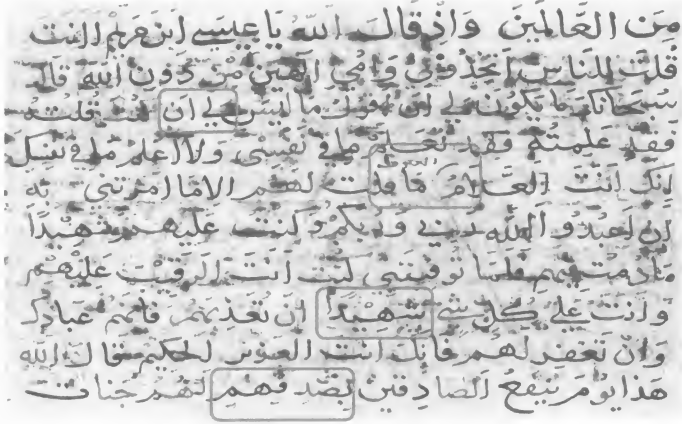 من العالمين واذ قال الله يا عيسى ابن مريم انت
قلت للناس اتخذوني وامي الهين من دون الله قال
سبحانك ما يكون لي ان اقول ما ليس لي ان كنت قلته
فقد علمته فقد تعلم ما في نفسي ولا اعلم ما في نفسك
انك انت العلام ما قلت لهم الا ما امرتني به
ان اعبدوا الله ربي وربكم وكنت عليهم شهيدا
ما دمت فيهم فلما توفيتني كنت انت الرقيب عليهم
وانت على كل شي شهيدا ان تعذبهم فانهم عبادك
وان تغفر لهم فانك انت العزيز الحكيم قال الله
هذا يوم ينفع الصادقين بصدقهم لهم جنات